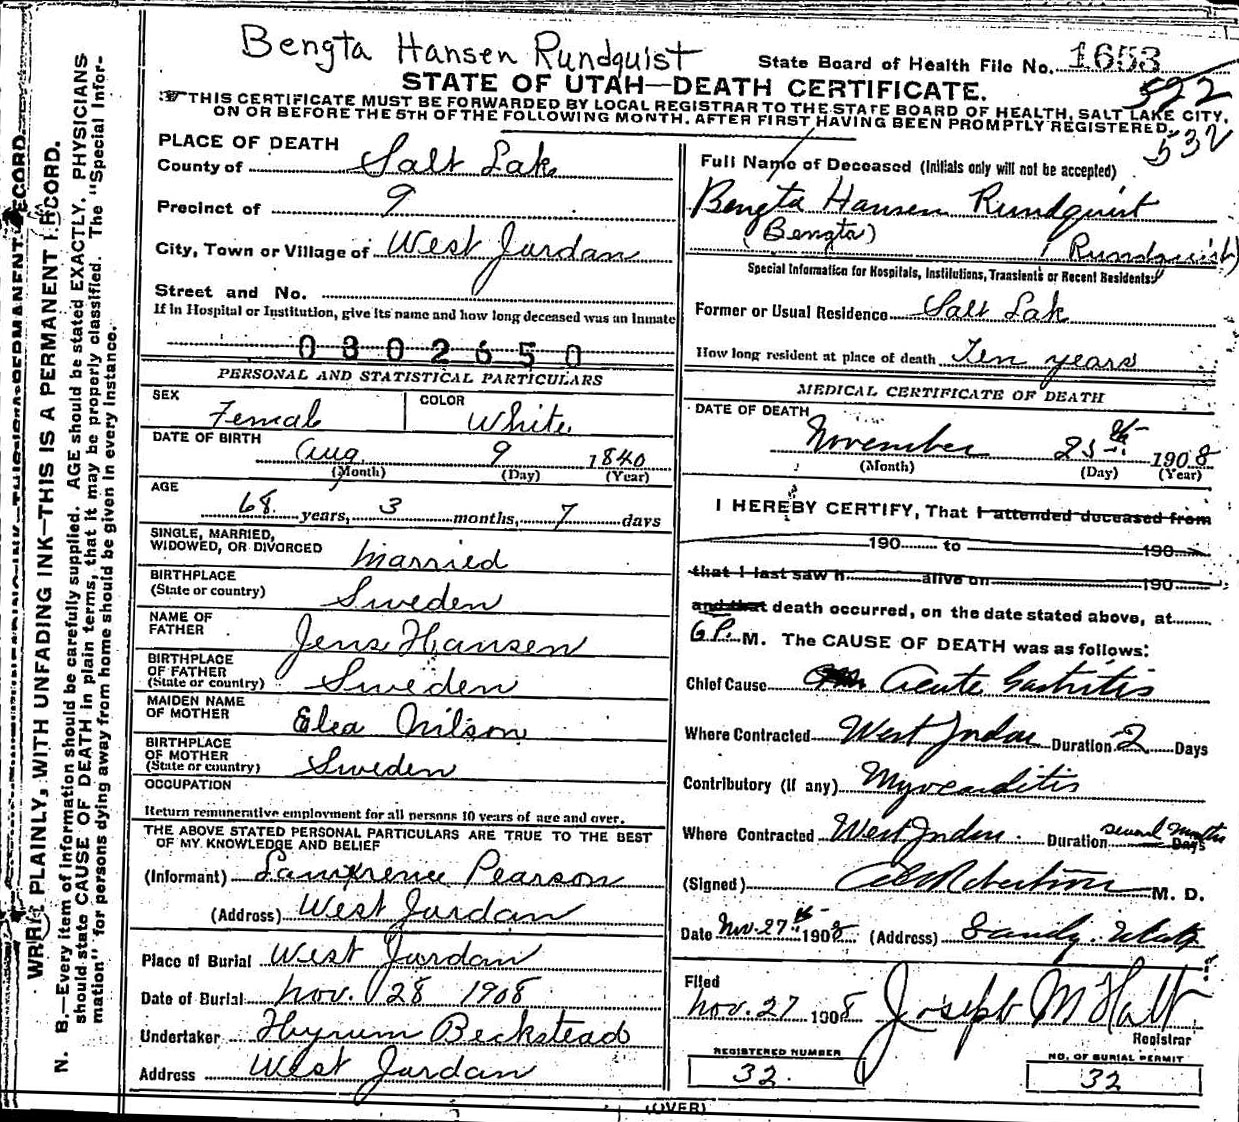 Bengta Hansen Rundquist
State Board of Health File No. 1653
STATE OF UTAH—DEATH CERTIFICATE.
522
THIS CERTIFICATE MUST BE FORWARDED BY LOCAL REGISTRAR TO THE STATE BOARD OF HEALTH, SALT LAKE CITY,
ON OR BEFORE THE 5TH OF THE FOLLOWING MONTH, AFTER FIRST HAVING BEEN PROMPTLY REGISTERED.
532
WRITE PLAINLY, WITH UNFADING INK—THIS IS A PERMANENT RECORD.
N. B.—Every item of information should be carefully supplied. AGE should be stated EXACTLY. PHYSICIANS
should state CAUSE OF DEATH in plain terms, that it may be properly classified. The "Special Infor-
mation" for persons dying away from home should be given in every instance.
PLACE OF DEATH
County of Salt Lake
Precinct of 9
City, Town or Village of West Jordan
Street and No.
If in Hospital or Institution, give its name and how long deceased was an Inmate
0302650
PERSONAL AND STATISTICAL PARTICULARS
SEX Female COLOR White
DATE OF BIRTH Aug 9 1840
(Month) (Day) (Year)
AGE
68 years, 3 months, 7 days
SINGLE, MARRIED,
WIDOWED, OR DIVORCED Married
BIRTHPLACE
(State or country) Sweden
NAME OF
FATHER Jens Hansen
BIRTHPLACE
OF FATHER
(State or country) Sweden
MAIDEN NAME
OF MOTHER Elea Nilson
BIRTHPLACE
OF MOTHER
(State or country) Sweden
OCCUPATION
Return remunerative employment for all persons 10 years of age and over.
THE ABOVE STATED PERSONAL PARTICULARS ARE TRUE TO THE BEST
OF MY KNOWLEDGE AND BELIEF
(Informant) Lawrence Pearson
(Address) West Jordan
Place of Burial West Jordan
Date of Burial Nov. 28 1908
Undertaker Hyrum Beckstead
Address West Jordan
Full Name of Deceased (Initials only will not be accepted)
Bengta Hansen Rundquist
(Bengta) (Rundquist)
Special Information for Hospitals, Institutions, Transients or Recent Residents:
Former or Usual Residence Salt Lake
How long resident at place of death Ten years
MEDICAL CERTIFICATE OF DEATH
DATE OF DEATH
November 25th 1908
(Month) (Day) (Year)
I HEREBY CERTIFY, That I attended deceased from
190 to 190
that I last saw h alive on 190
and that death occurred, on the date stated above, at
6 P. M. The CAUSE OF DEATH was as follows:
Chief Cause Acute Gastritis
Where Contracted West Jordan Duration 2 Days
Contributory (if any) Myocarditis
Where Contracted West Jordan Duration several months Days
(Signed) Robertson M. D.
Date Nov. 27th 1908 (Address) Sandy. Utah
Filed
Nov. 27 1908 Joseph M Holt
Registrar
REGISTERED NUMBER
32.
NO. OF BURIAL PERMIT
32
(OVER)